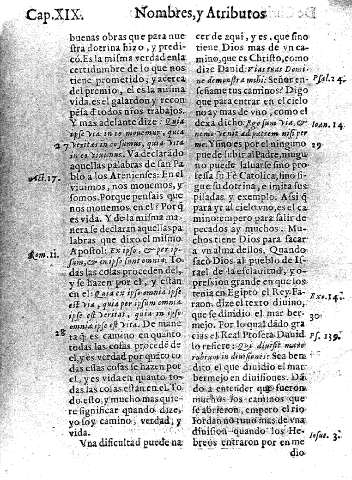 Cap.XIX. Nombres, y Atributos
buenas obras que para nue
stra dotrina hizo, y predi-
có. Es la misma verdad en la
certidumbre de lo que nos
tiene prometido; y acerca
del premio, el es la misma
vida. es el galardon y recom
pésa d todos nros trabajos.
Y mas adelante dize: Quia
ipse via in te monemur, quia
27 veritas in te sumus, quia vita
in te vivimus. Va declarādo
aquellas palabras de san Pa
Act. 17. blo a los Atenienses: En el
viuimos, nos mouemos, y
somos. Porque pensais que
nos mouemos en el? Porq̃
es vida. Y de la misma ma
nera se declaran aquellas pa
labras que dixo el mismo
Rom. 11. Apostol: Ex ipso, & per ip-
sum, & in ipso sunt omnia: To
das las cosas proceden del,
y se hazen por el, y estan
en el: Quia ex ipso omnia ipse
est via, quia per ipsum omnia
ipse est veritas, quia in ipso
omnia ipse est vita. De mane
28 ra q̃ es camino en quanto
todas las cosas procede de
el, y es verdad por quāto to
das ellas cosas se hazen por
el, y es vida en quanto to-
das las cosas estan en el. To
do esto, y mucho mas quie
re significar quando dize,
yo soy camino, verdad, y
vida.
Vna dificultad puede na
cer de aqui, y es, que sino
tiene Dios mas de vn ca
mino, que es Christo, como
dize Dauid: Vias tuas Domi
ne demonstra mihi: Señor en- Psal. 24.
señame tus caminos? Digo
que para entrar en el cielo
no ay mas de vno, como el
dexa dicho: Ego sum via, &
nemo venit ad patrem nisi per Ioan. 14.
me. Y no es por el ninguno 29
puede subir al Padre, ningu
no puede saluarse sino pro
fessa su Fè Catolica, sino si
gue su dotrina, e imita sus
pisadas y exemplo. Assi q̃
para yr al cielo vno, es el ca
mino: empero para salir de
pecado ay muchos: Mu
chos tiene Dios para sacar
a vn alma dellos. Quando
sacò Dios al pueblo de Is-
rael de la esclauitud, y o-
pression grande en que los
tenia en Egipto el Rey Fa-
raon. dize el texto diuino, Exo. 14.
que se diuidio el mar ber
mejo. Por lo qual dādo gra 30.
cias el Real Profeta Dauid
lo refiere: Qui diuisit mare Ps. 135.
rubrum in diuisiones: Sea ben
dito el que diuidio el mar
bermejo en diuisiones. Dā
do a entender que fueron
muchos los caminos que
se abrieron, empero el rio
Iordan no tuuo mas de vna
diuision quando los He- Iosue. 3.
breos entraron por en me
dio